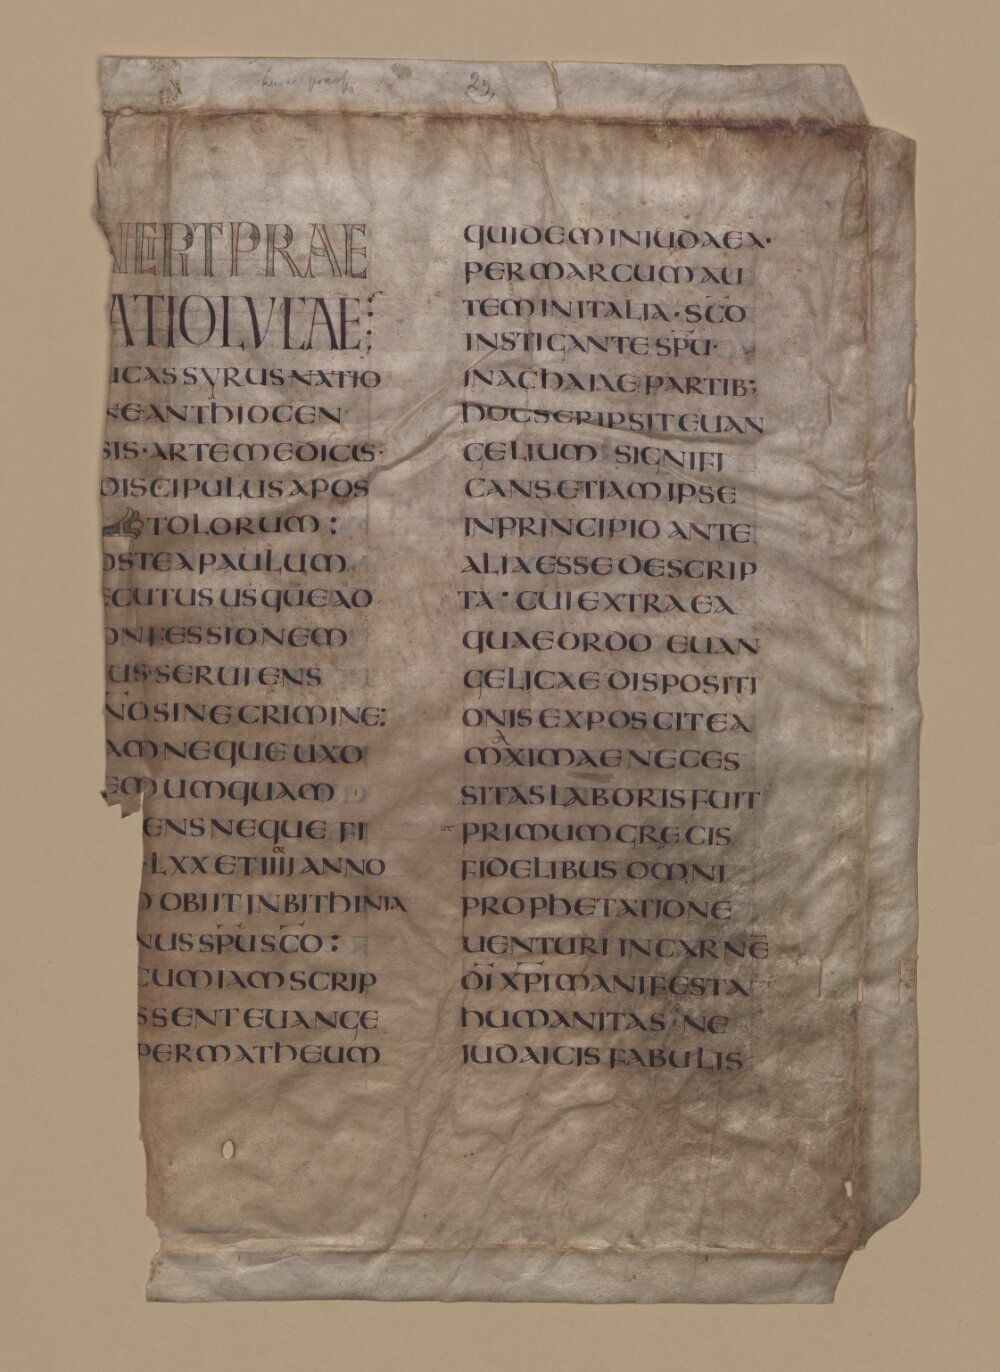 29
PRAE
ATIOLUCAE:
ICAS SYRUS NATIO
NE ANTHIOCEN
SIS· ARTE MEDICUS·
DISCIPULUS APOS
TOLORUM :
OSTEA PAULUM
ECUTUS USQUE AD
ONFESSIONEM
US· SERUIENS
NO SINE CRIMINE:
AM NEQUE UXO
EM UMQUAM
ENS NEQUE FI
· LXX ET IIII ANNO
D OBIIT IN BITHINIA
NUS SPU SCO :
CUM IAM SCRIP
SSENT EUANGE
PER MATHEUM
QUIDEM IN IUDAEA·
PER MARCUM AU
TEM IN ITALIA · SCO
INSTIGANTE SPU·
IN ACHAIAE PARTIB;
HOC SCRIPSIT EUAN
GELIUM SIGNIFI
CANS ETIAM IPSE
IN PRINCIPIO ANTE
ALIA ESSE DESCRIP
TA · CUI EXTRA EA
QUAE ORDO EUAN
GELICAE DISPOSITI
ONIS EXPOSCIT EA
MAXIMAE NECES
SITAS LABORIS FUIT
PRIMUM GRECIS
FIDELIBUS OMNI
PROPHETATIONE
UENTURI IN CARNĒ
DI XPI MANIFESTA
HUMANITAS· NE
IUDAICIS FABULIS